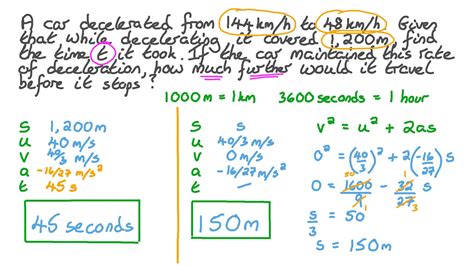 A car decelerated from 144 km/h to 48 km/h. Given
that while decelerating it covered 1,200 m, find
the time t it took. If the car maintained this rate
of deceleration, how much further would it travel
before it stops?
1000 m = 1 km 3600 seconds = 1 hour
s 1,200 m
u 40 m/s
v 40/3 m/s
a -16/27 m/s²
t 45 s
45 seconds
s s
u 40/3 m/s
v 0 m/s
a -16/27 m/s²
t —
150 m
v² = u² + 2as
0² = (40/3)² + 2(-16/27) s
0 = 1600/9 - 32/27 s
50 1 1 3
s/3 = 50
s = 150 m